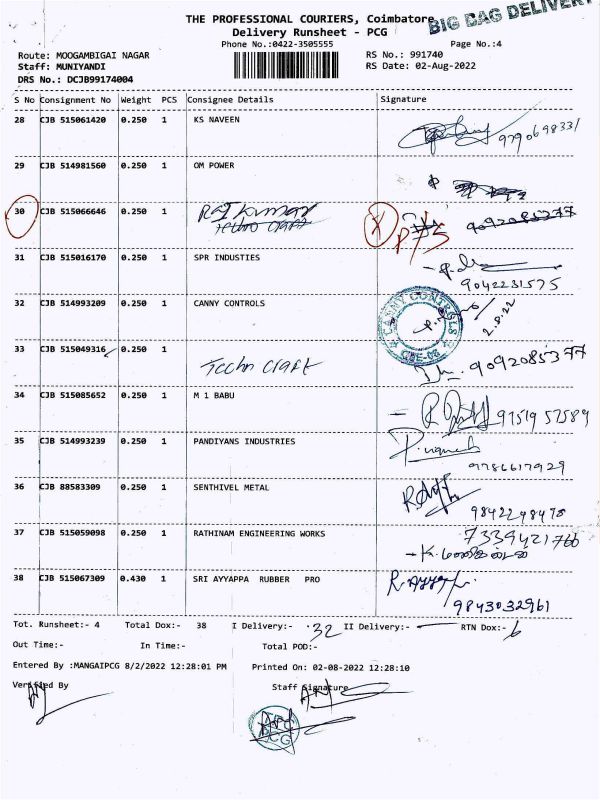 THE PROFESSIONAL COURIERS, Coimbatore
BIG BAG DELIVERY
Delivery Runsheet - PCG
Phone No.:0422-3505555
Page No.:4
Route: MOOGAMBIGAI NAGAR
RS No.: 991740
Staff: MUNIYANDI
RS Date: 02-Aug-2022
DRS No.: DCJB99174004
S No Consignment No Weight PCS Consignee Details Signature
28 CJB 515061420 0.250 1 KS NAVEEN
9790698331
29 CJB 514981560 0.250 1 OM POWER
30 CJB 515066646 0.250 1 Raj Kumar
Techno craft
9092085377
31 CJB 515016170 0.250 1 SPR INDUSTIES
9042231575
32 CJB 514993209 0.250 1 CANNY CONTROLS
CANNY CONTROLS
CBE-06
2.8.22
33 CJB 515049316 0.250 1
Techn craft
9092085377
34 CJB 515085652 0.250 1 M 1 BABU
9751957589
35 CJB 514993239 0.250 1 PANDIYANS INDUSTRIES
9786617929
36 CJB 88583309 0.250 1 SENTHIVEL METAL
9842248478
37 CJB 515059098 0.250 1 RATHINAM ENGINEERING WORKS
7339421766
38 CJB 515067309 0.430 1 SRI AYYAPPA RUBBER PRO
9843032961
Tot. Runsheet:- 4 Total Dox:- 38 I Delivery:- 32 II Delivery:- — RTN Dox:- 6
Out Time:- In Time:- Total POD:-
Entered By :MANGAIPCG 8/2/2022 12:28:01 PM Printed On: 02-08-2022 12:28:10
Verified By Staff Signature